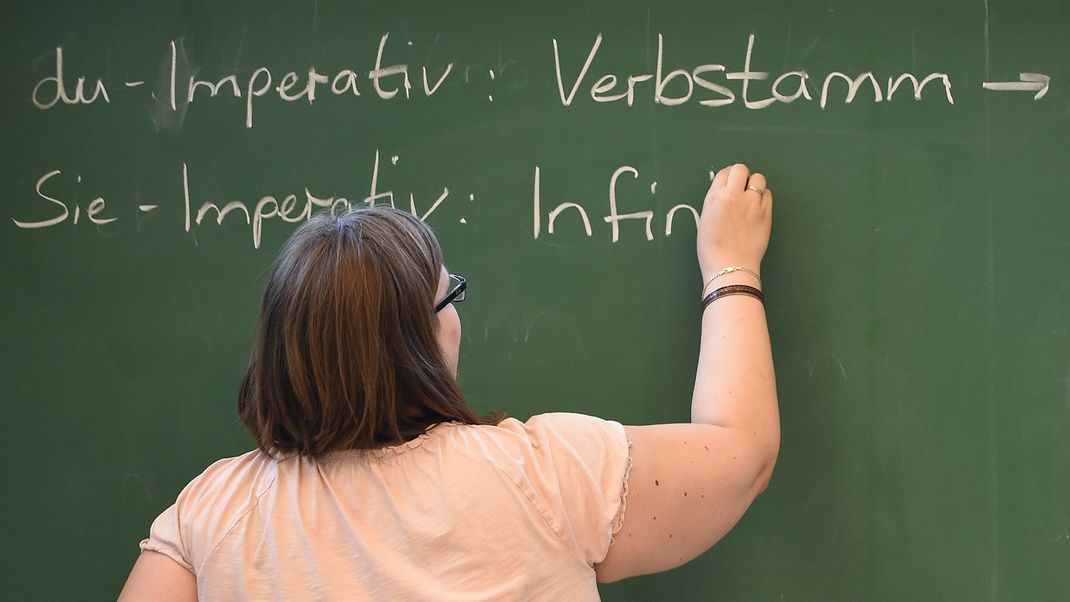 du-Imperativ: Verbstamm →
Sie-Imperativ: Infini